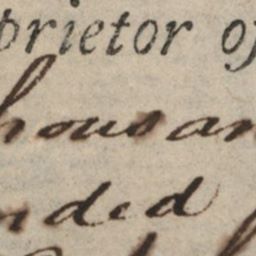 prietor of
housan
nded